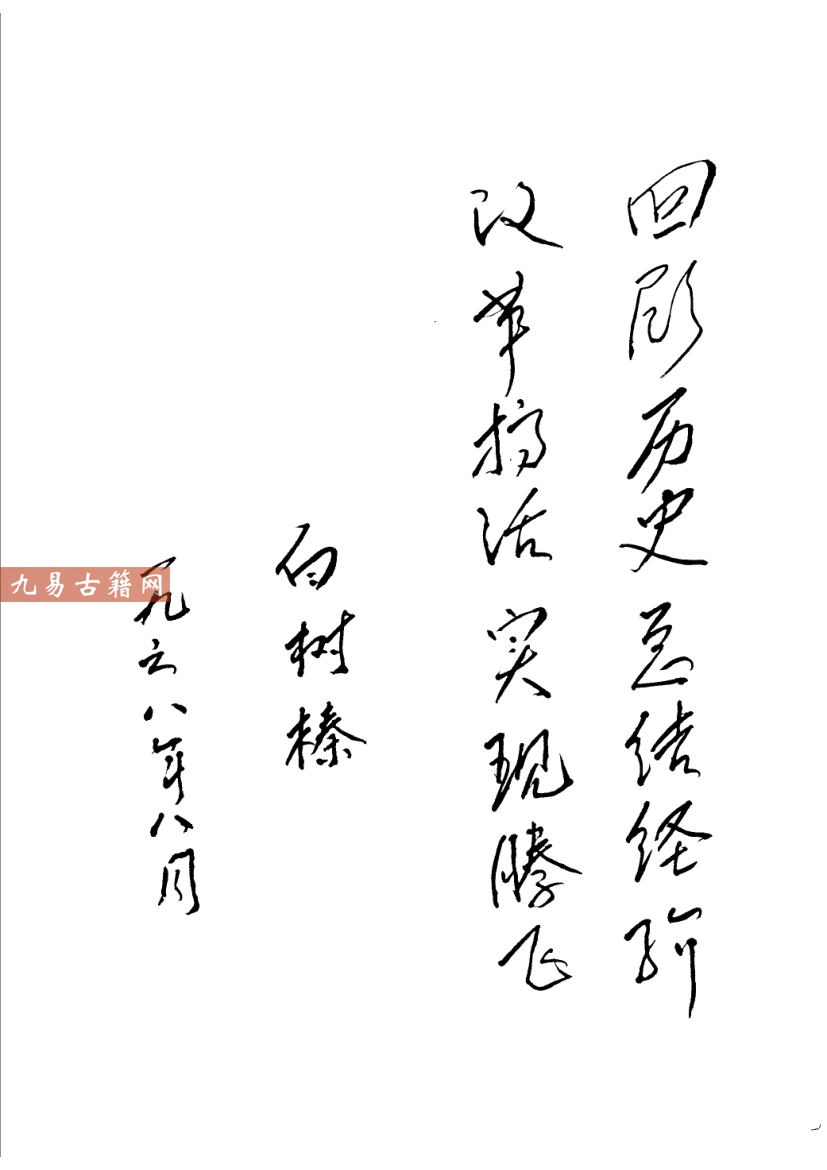 回顾历史总结经验
改革搞活实现腾飞
白树榛
一九六八年八月
九易古籍网